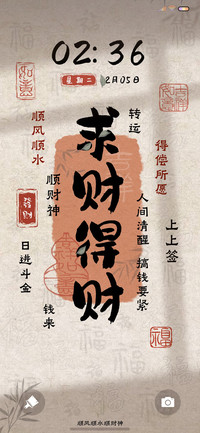 02:36
星期二
2月05日
求财得财
转运
得偿所愿
顺风顺水
顺财神
發財
人间清醒 搞钱要紧
上上签
日进斗金
钱来
顺风顺水顺财神